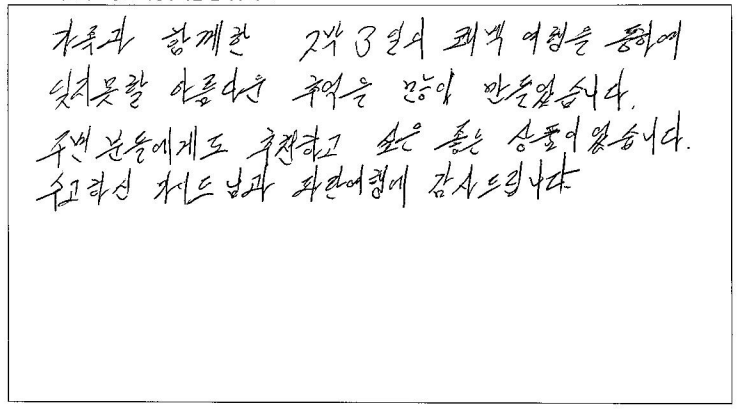 가족과 함께한 2박 3일의 퀘백 여행을 통하여
잊지못할 아름다운 추억을 많이 만들었습니다.
주변 분들에게도 추천하고 싶은 좋은 상품이었습니다.
수고하신 가이드님과 파란여행에 감사드립니다.